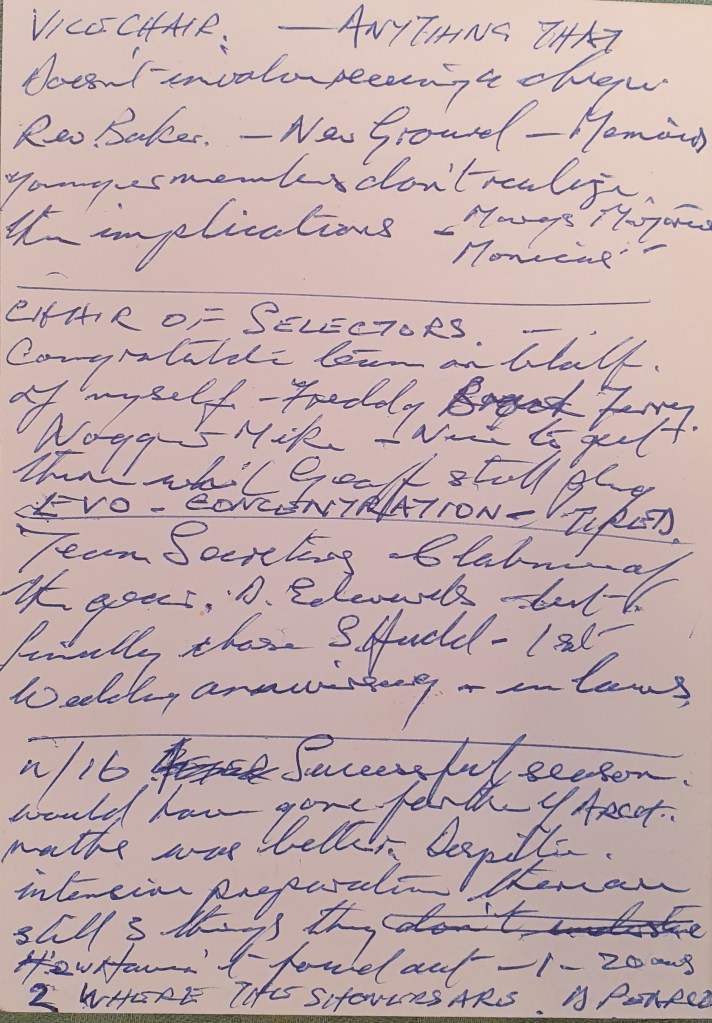 VICE CHAIR. — ANYTHING THAT
Doesn't involve receiving a cheque
Rev Baker. — New Ground — Memories
younger members don't realize
the implications — Marys Majorie
Monicas"
CHAIR OF SELECTORS. —
Congratulate team on behalf.
of myself - Freddy Terry.
Mike - Nice to get
there whilst Geoff still play
EVO - CONCENTRATION - TIRED.
Team Secretary Clubman of
the year. D. Edwards - but
finally chose S. Hudd - 1st
Wedding anniversary - in laws,
u/16 Successful season.
would have gone further if
maths was better. Despite.
intensive preparation there are
still 3 things they don't
Haven't found out - 1 -
2 WHERE THE SHOWERS ARE.